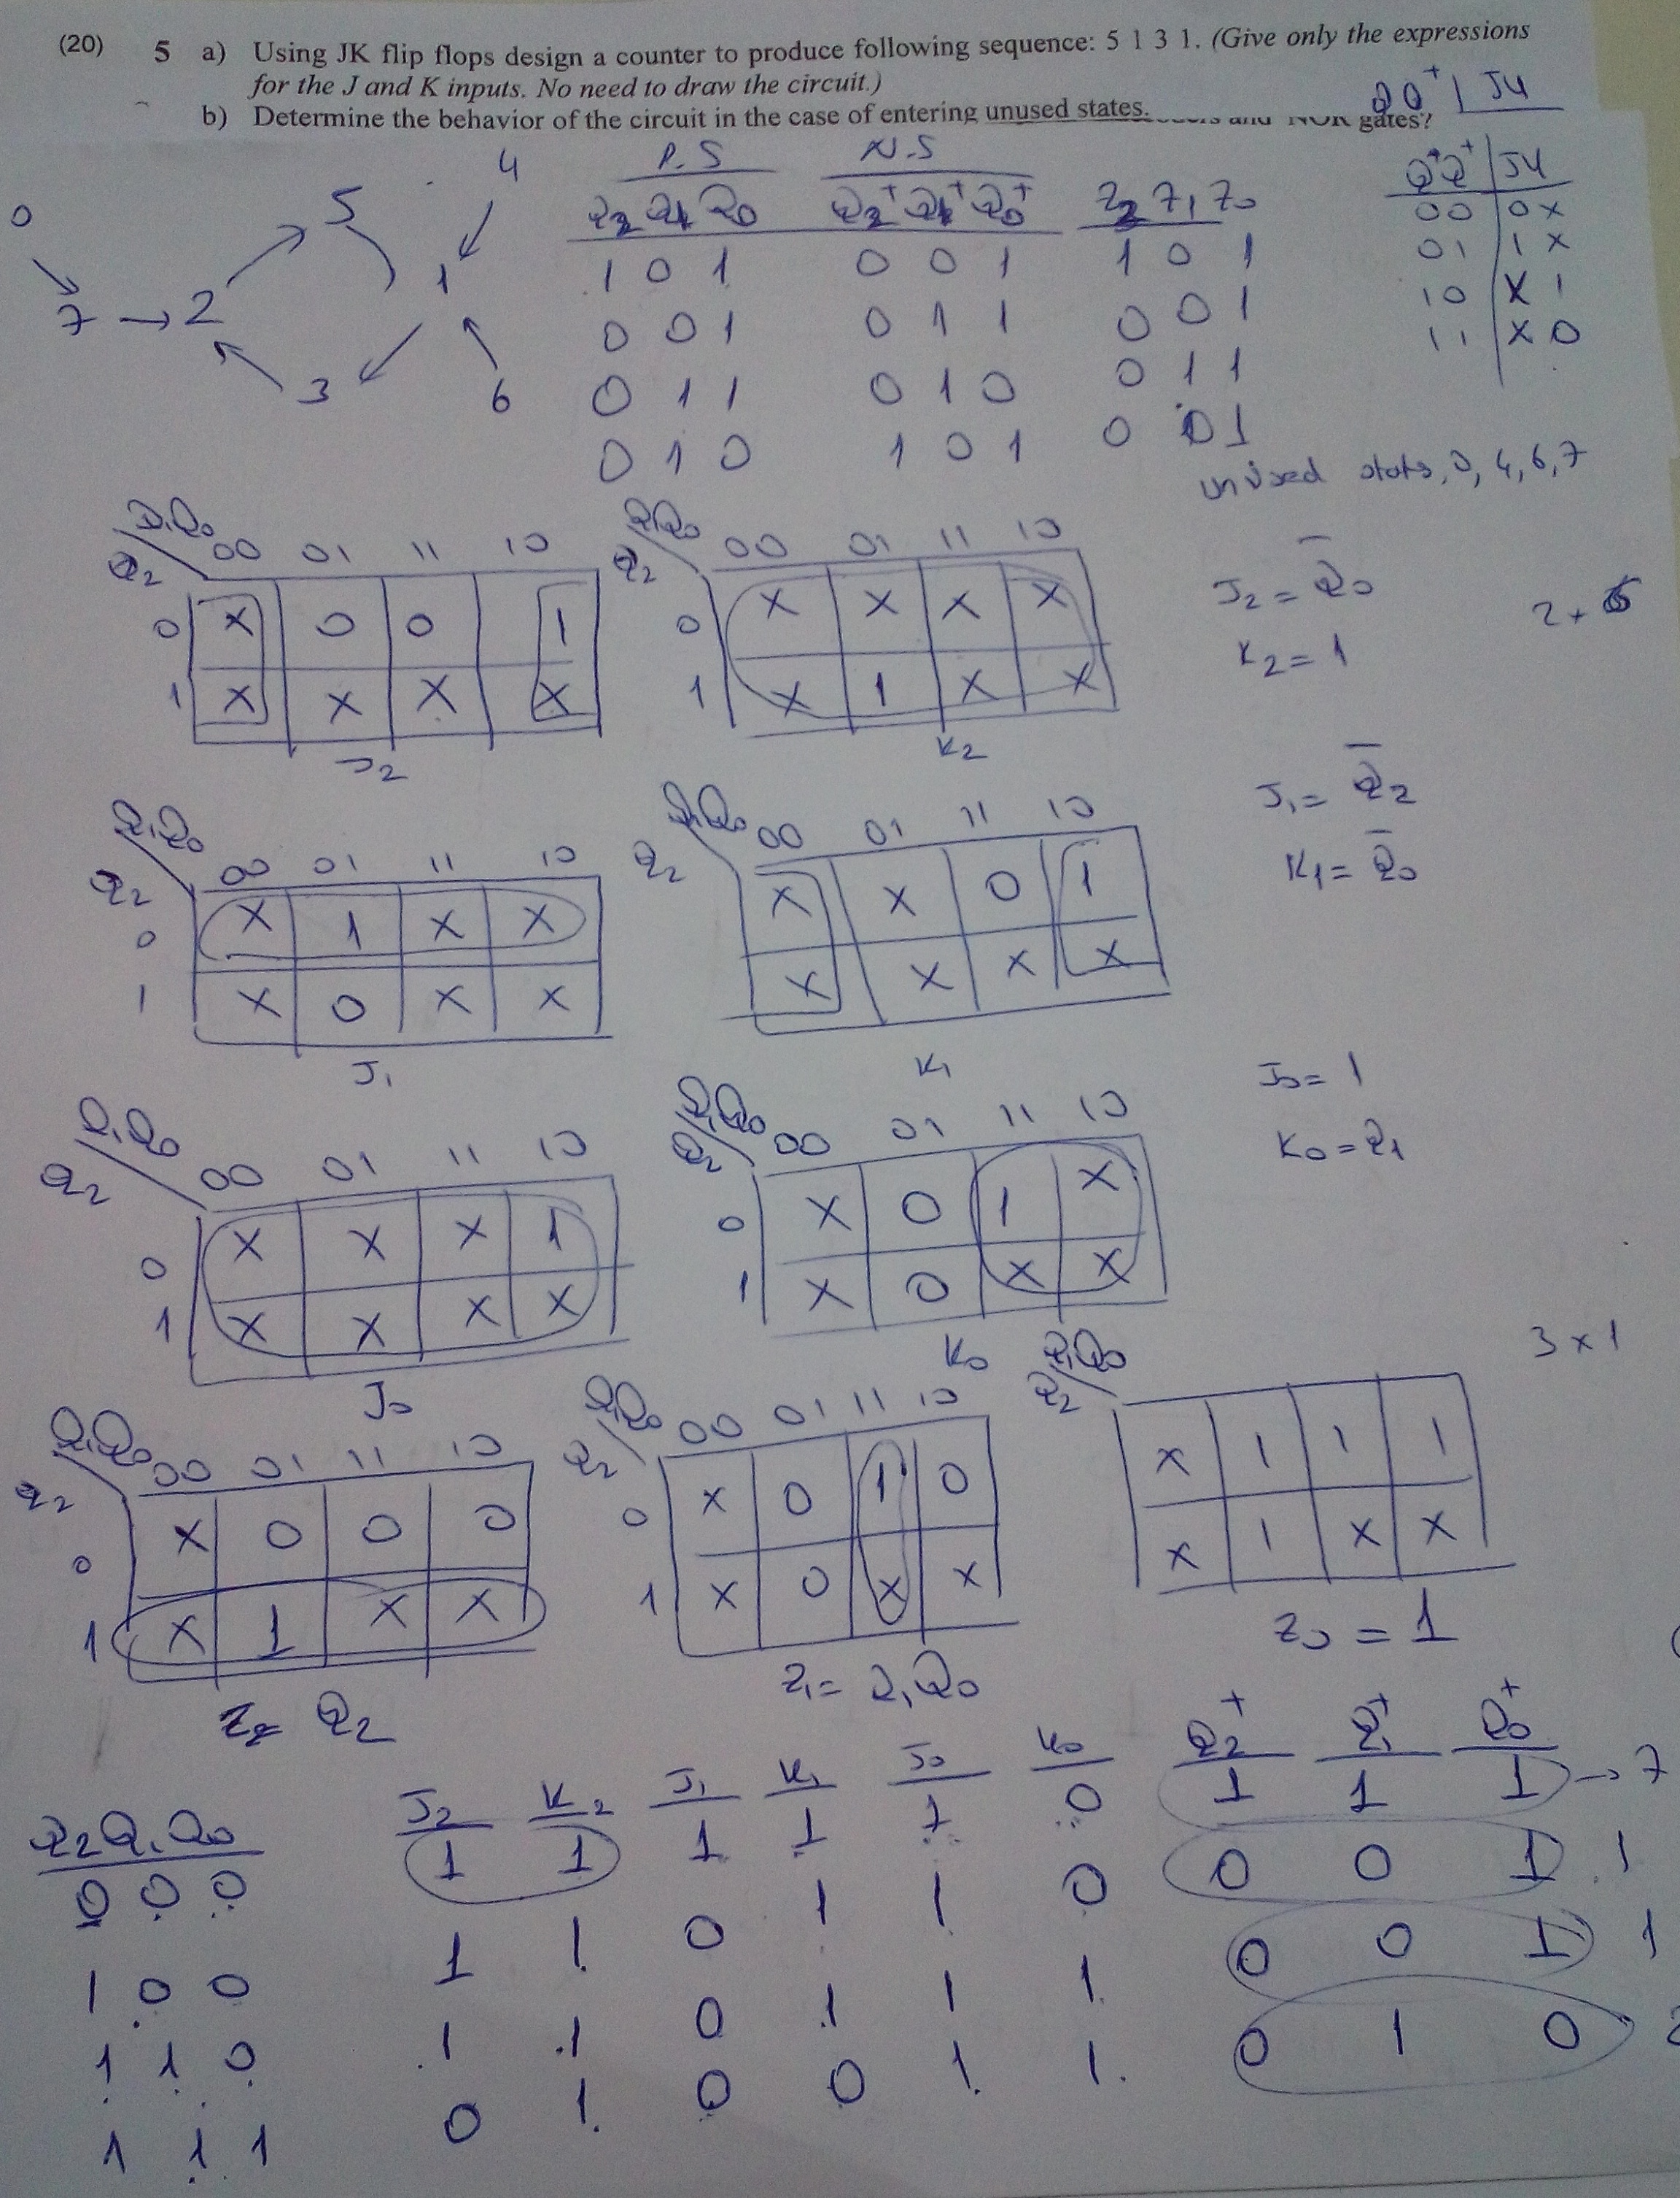 (20) 5 a) Using JK flip flops design a counter to produce following sequence: 5 1 3 1. (Give only the expressions
for the J and K inputs. No need to draw the circuit.)
b) Determine the behavior of the circuit in the case of entering unused states.
and NOR gates?
Q Q⁺ | J K
0 → 7 → 2 → 5 1 3 4 6
P.S N.S
Q2 Q1 Q0 Q2⁺ Q1⁺ Q0⁺ Z2 Z1 Z0
1 0 1 0 0 1 1 0 1
0 0 1 0 1 1 0 0 1
0 1 1 0 1 0 0 1 1
0 1 0 1 0 1 0 0 1
Q⁺Q⁺ | JK
00 | 0 X
01 | 1 X
10 | X 1
11 | X 0
unused states, 0, 4, 6, 7
Q1Q0 00 01 11 10
Q2
0 X 0 0 1
1 X X X X
J2
Q1Q0 00 01 11 10
Q2
0 X X X X
1 X 1 X X
K2
J2 = Q̅0
K2 = 1
Q1Q0 00 01 11 10
Q2
0 X 1 X X
1 X 0 X X
J1
Q1Q0 00 01 11 10
Q2
X X 0 1
X X X X
K1
J1 = Q̅2
K1 = Q̅0
Q1Q0 00 01 11 10
Q2
0 X X X 1
1 X X X X
J0
Q1Q0 00 01 11 10
Q2
0 X 0 1 X
1 X 0 X X
K0
J0 = 1
K0 = Q1
3 x 1
Q1Q0 00 01 11 10
Q2
0 X 0 0 0
1 X 1 X X
Z2 = Q2
Q1Q0 00 01 11 10
Q2
0 X 0 1 0
1 X 0 X X
Z1 = Q1Q0
Q1Q0
Q2
X 1 1 1
X 1 X X
Z0 = 1
Q2Q1Q0 J2 K2 J1 K1 J0 K0 Q2⁺ Q1⁺ Q0⁺
0 0 0 1 1 1 1 1 0 1 1 1 → 7
1 0 0 1 1 0 1 1 0 0 0 1 1
1 1 0 1 1 0 1 1 1 0 0 1 1
1 1 1 0 1 0 0 1 1 0 1 0